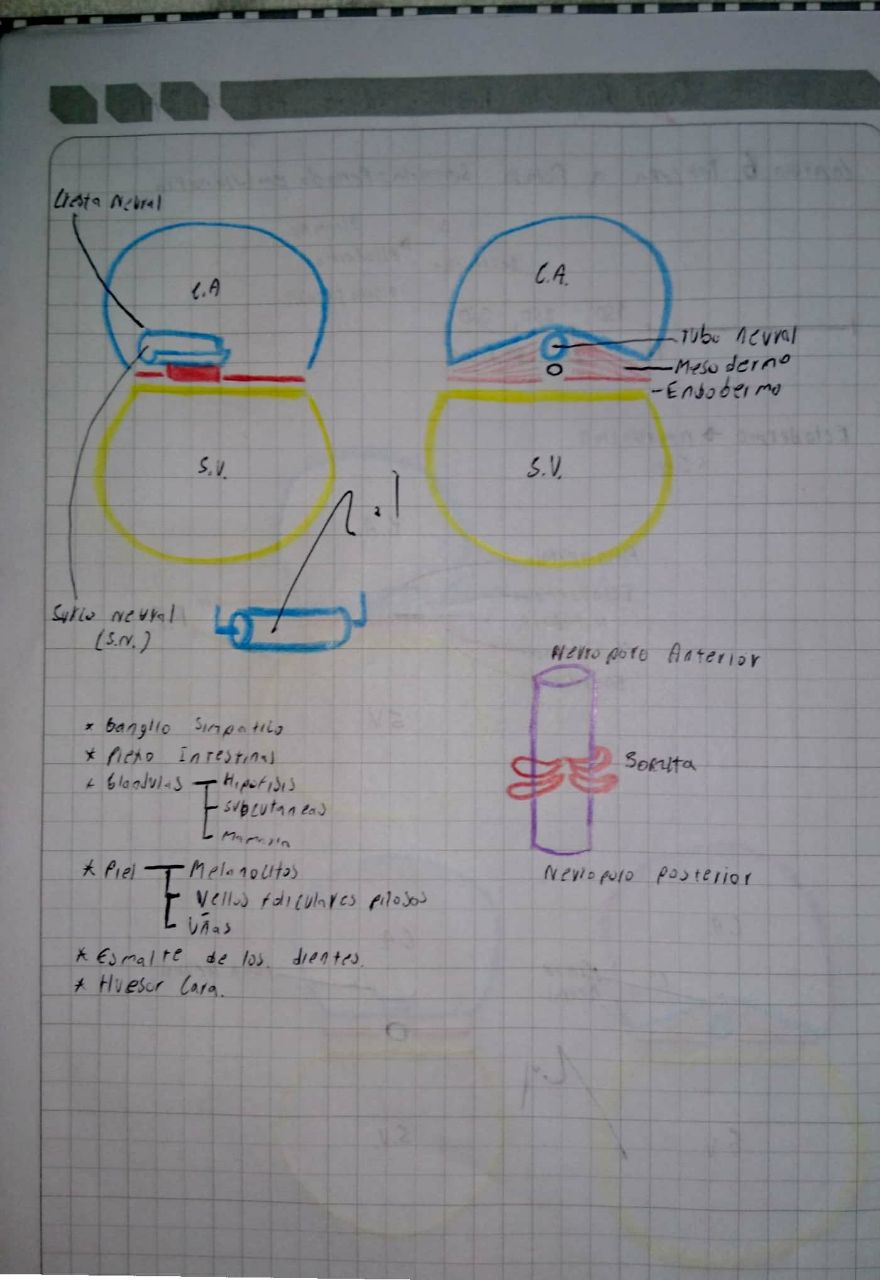 Cresta Neural
C.A
C.A.
Tubo neural
Mesodermo
Endobermo
S.V.
S.V.
Surco neural
(S.N.)
Neuroporo Anterior
Somita
Neuroporo posterior
* Ganglio Simpatico
* Plexo Intestinal
* Glandulas Hipofisis
Subcutaneas
* Piel Melanocitos
Vellos foliculares pilosos
Uñas
* Esmalte de los dientes.
* Huesos Cara.